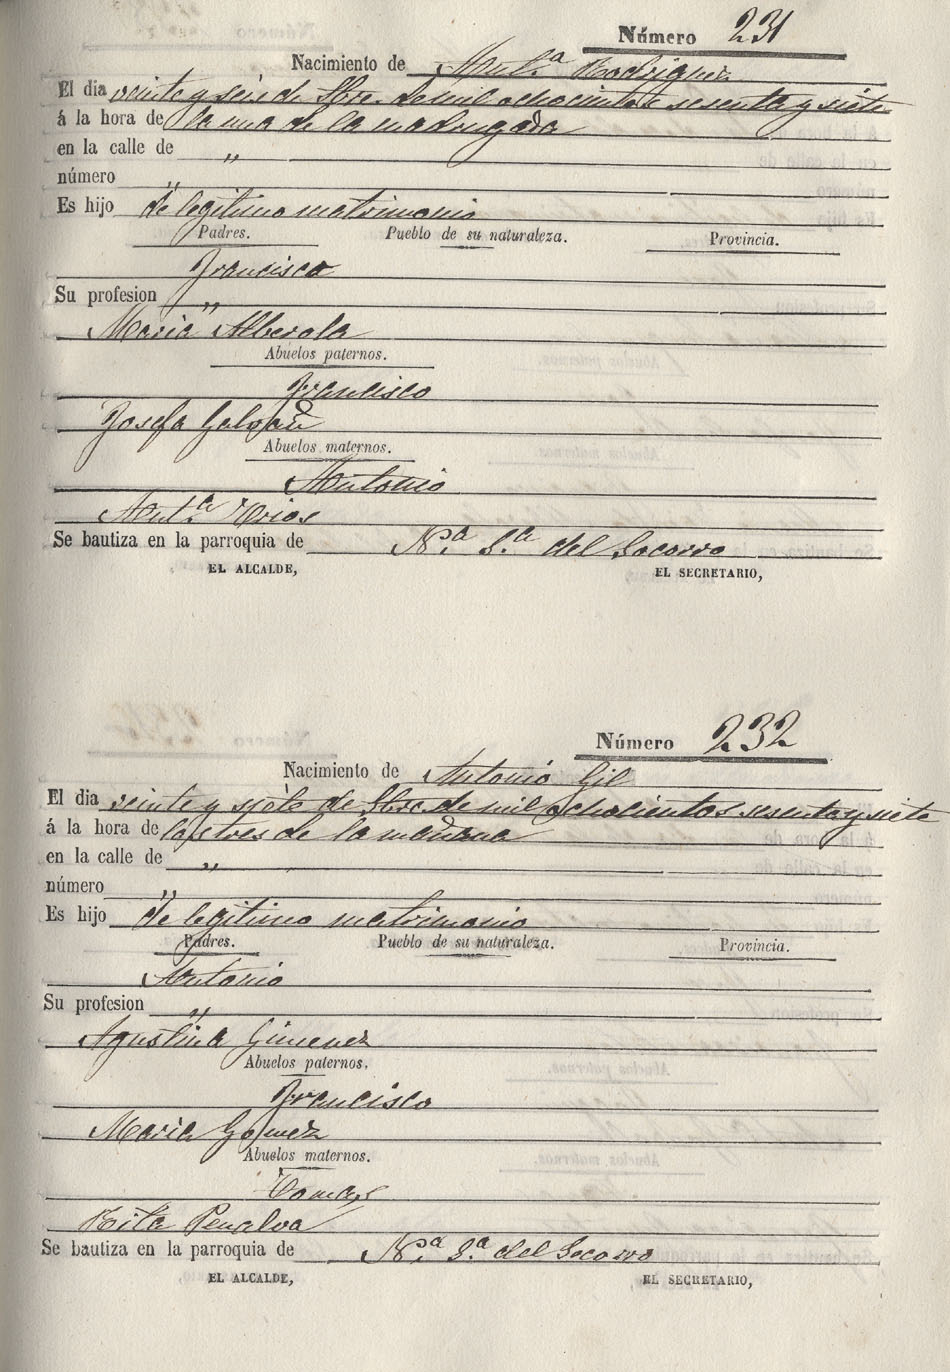 Número 231
Nacimiento de Ant.ª Rodriguez
El dia veinte y seis de Sbre. de mil ochocientos sesenta y siete
á la hora de la una de la madrugada
en la calle de "
número "
Es hijo de legitimo matrimonio
Padres. Pueblo de su naturaleza. Provincia.
Francisco
Su profesion "
Maria Alberola
Abuelos paternos.
Francisco
Josefa Galvañ
Abuelos maternos.
Antonio
Ant.ª Rios
Se bautiza en la parroquia de N.ª S.ª del Socorro
EL ALCALDE, EL SECRETARIO,
Número 232
Nacimiento de Antonio Gil
El dia veinte y siete de Sbre. de mil ochocientos sesenta y siete
á la hora de las tres de la mañana
en la calle de "
número "
Es hijo de legitimo matrimonio
Padres. Pueblo de su naturaleza. Provincia.
Antonio
Su profesion "
Agustina Gimenez
Abuelos paternos.
Francisco
Maria Gomez
Abuelos maternos.
Tomas
Rita Penalva
Se bautiza en la parroquia de N.ª S.ª del Socorro
EL ALCALDE, EL SECRETARIO,